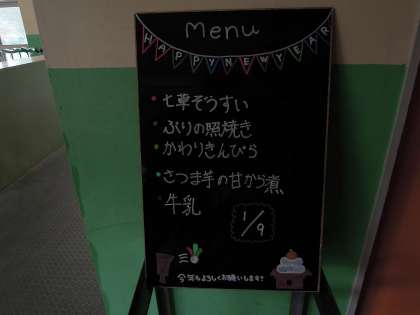 Menu
HAPPYNEWYEAR
七草ぞうすい
ぶりの照焼き
かわりきんぴら
さつま芋の甘から煮
牛乳
1/9
今年もよろしくお願いします!